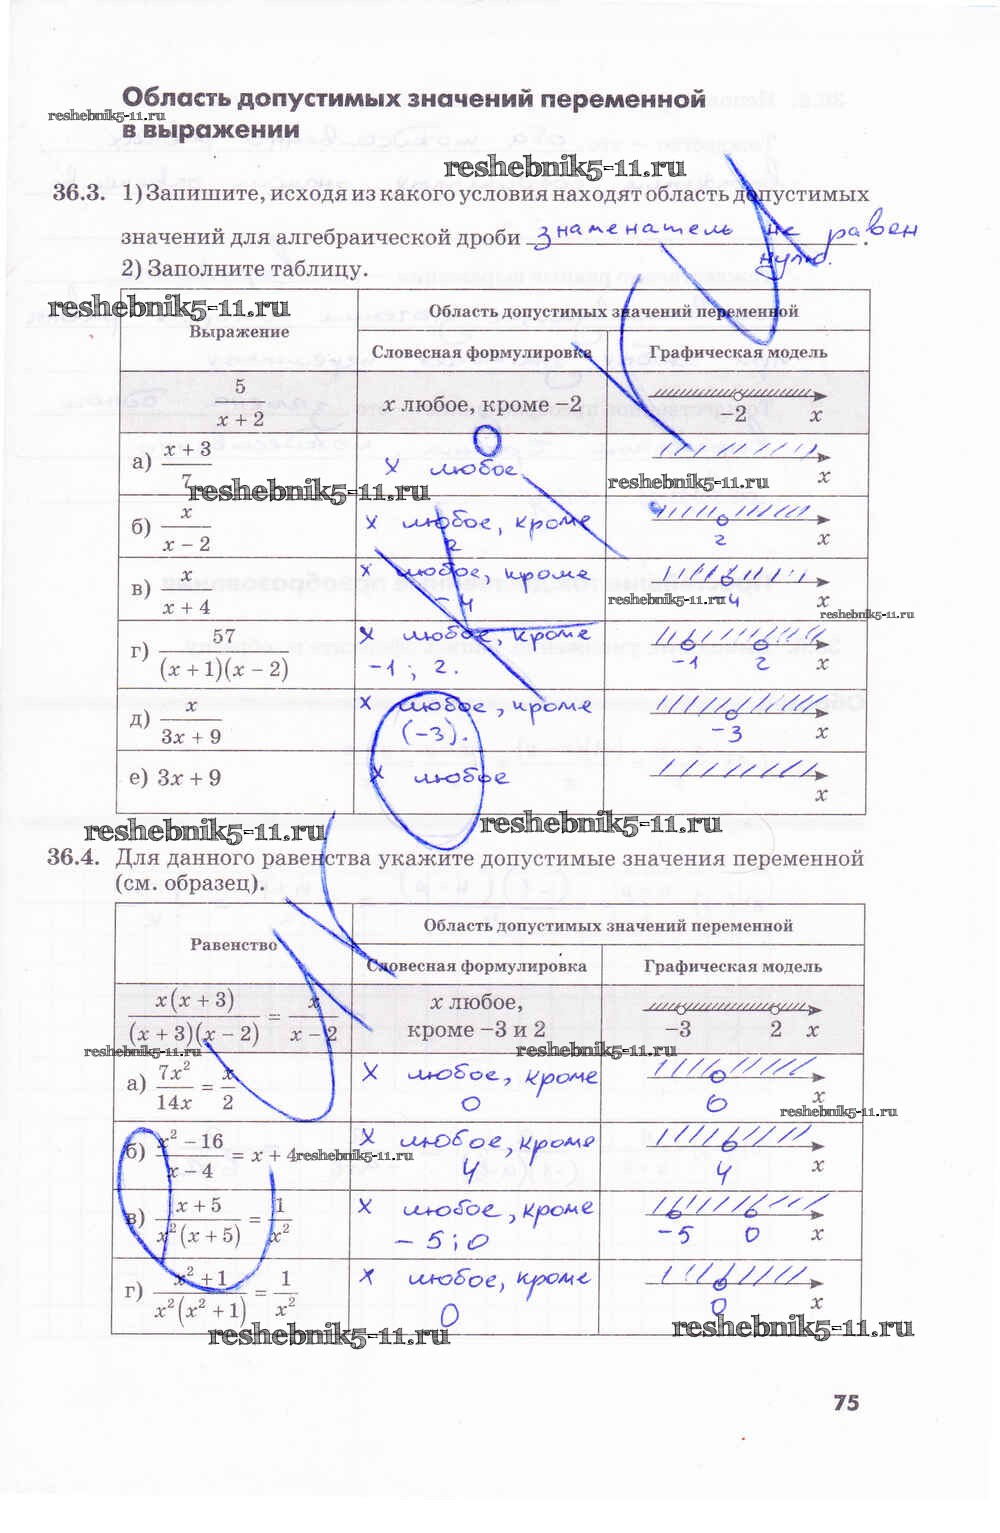 Область допустимых значений переменной
reshebnik5-11.ru
в выражении
reshebnik5-11.ru
36.3. 1) Запишите, исходя из какого условия находят область допустимых
значений для алгебраической дроби знаменатель не равен
нулю.
2) Заполните таблицу.
reshebnik5-11.ru
Выражение
Область допустимых значений переменной
Словесная формулировка Графическая модель
5/(x + 2) x любое, кроме −2 −2 x
а) (x + 3)/7 x любое x
reshebnik5-11.ru
reshebnik5-11.ru
б) x/(x − 2) x любое, кроме 2 2 x
в) x/(x + 4) x любое, кроме −4 −4 x
reshebnik5-11.ru
reshebnik5-11.ru
г) 57/((x + 1)(x − 2)) x любое, кроме −1 ; 2. −1 2 x
д) x/(3x + 9) x любое, кроме (−3). −3 x
е) 3x + 9 x любое x
reshebnik5-11.ru
reshebnik5-11.ru
36.4. Для данного равенства укажите допустимые значения переменной
(см. образец).
Равенство
Область допустимых значений переменной
Словесная формулировка Графическая модель
x(x + 3)/((x + 3)(x − 2)) = x/(x − 2) x любое, кроме −3 и 2 −3 2 x
reshebnik5-11.ru
reshebnik5-11.ru
а) 7x²/14x = x/2 x любое, кроме 0 0 x
reshebnik5-11.ru
б) (x² − 16)/(x − 4) = x + 4 x любое, кроме 4 4 x
reshebnik5-11.ru
в) (x + 5)/(x²(x + 5)) = 1/x² x любое, кроме −5 ; 0 −5 0 x
г) (x² + 1)/(x²(x² + 1)) = 1/x² x любое, кроме 0 0 x
reshebnik5-11.ru
reshebnik5-11.ru
75